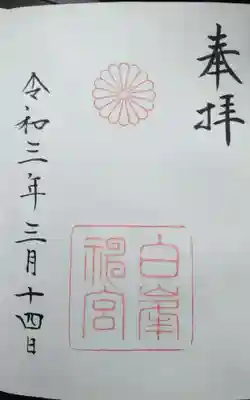 奉拝
白峯神宮
令和三年三月十四日